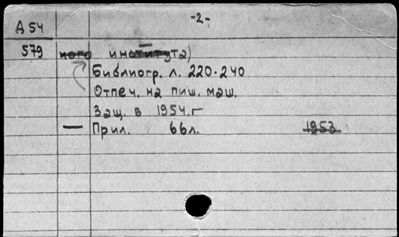 -2-
А 54
579 ного института)
Библиогр. л. 220-240
Отпеч. на пиш. маш.
Защ. в 1954.г
— Прил. 66л. 1953